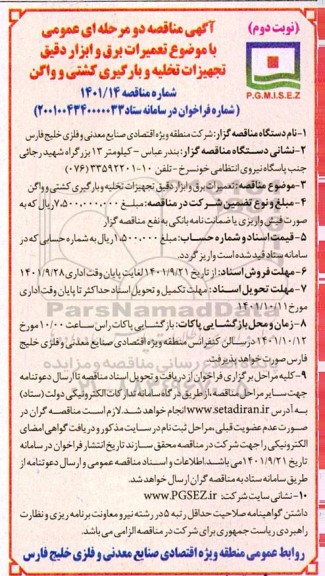 (نوبت دوم)
آگهی مناقصه دو مرحله ای عمومی
با موضوع تعمیرات برق و ابزار دقیق
تجهیزات تخلیه و بارگیری کشتی و واگن
شماره مناقصه ۱۴۰۱/۱۴
(شماره فراخوان در سامانه ستاد ۲۰۰۱۰۰۴۳۴۰۰۰۰۰۳۳)
P.G.M.I.S.E.Z
۱-نام دستگاه مناقصه گزار: شرکت منطقه ویژه اقتصادی صنایع معدنی و فلزی خلیج فارس
۲-نشانی دستگاه مناقصه گزار: بندر عباس - کیلومتر ۱۳ بزرگراه شهید رجائی
جنب پاسگاه نیروی انتظامی خونسرخ - تلفن ۱۰-۳۳۵۹۲۲۰۱ (۰۷۶)
۳-موضوع مناقصه: تعمیرات برق و ابزار دقیق تجهیزات تخلیه و بارگیری کشتی و واگن
۴- مبلغ و نوع تضمین شرکت در مناقصه: مبلغ ۷،۵۰۰،۰۰۰،۰۰۰ ریال که به
صورت فیش واریزی یا ضمانت نامه بانکی به نفع مناقصه گزار
۵-قیمت اسناد و شماره حساب: مبلغ ۱،۵۰۰،۰۰۰ ریال به شماره حسابی که در
سامانه ستاد قید شده است واریز گردد.
۶- مهلت فروش اسناد: از تاریخ ۱۴۰۱/۹/۲۱ لغایت پایان وقت اداری ۱۴۰۱/۹/۲۸
۷- مهلت تحویل اسناد: مهلت تکمیل و تحویل اسناد حداکثر تا پایان وقت اداری
مورخ ۱۴۰۱/۱۰/۱۱
۸-زمان و محل بازگشایی پاکات: بازگشایی پاکات راس ساعت ۱۰/۰۰ مورخ
۱۴۰۱/۱۰/۱۲ در سالن کنفرانس منطقه ویژه اقتصادی صنایع معدنی و فلزی خلیج
فارس صورت خواهد پذیرفت.
۹-کلیه مراحل برگزاری فراخوان از دریافت و تحویل اسناد مناقصه تا ارسال دعوتنامه
جهت سایر مراحل مناقصه، از طریق درگاه سامانه تدارکات الکترونیکی دولت (ستاد)
به آدرس www.setadiran.ir انجام خواهد شد. لازم است مناقصه گران در
صورت عدم عضویت قبلی، مراحل ثبت نام در سایت مذکور و دریافت گواهی امضای
الکترونیکی را جهت شرکت در مناقصه محقق سازند تاریخ انتشار فراخوان در سامانه
تاریخ ۱۴۰۱/۹/۲۱ می باشد. اطلاعات و اسناد مناقصه عمومی و ارسال دعوتنامه از
طریق سامانه ستاد به مناقصه گران ارسال خواهد شد.
۱۰-نشانی سایت شرکت: www.PGSEZ.ir
داشتن گواهینامه صلاحیت حداقل رتبه ۵ در رشته نیرو و معاونت برنامه ریزی و نظارت
راهبردی ریاست جمهوری برای شرکت در مناقصه الزامی می باشد.
روابط عمومی منطقه ویژه اقتصادی صنایع معدنی و فلزی خلیج فارس
ParsNamadData